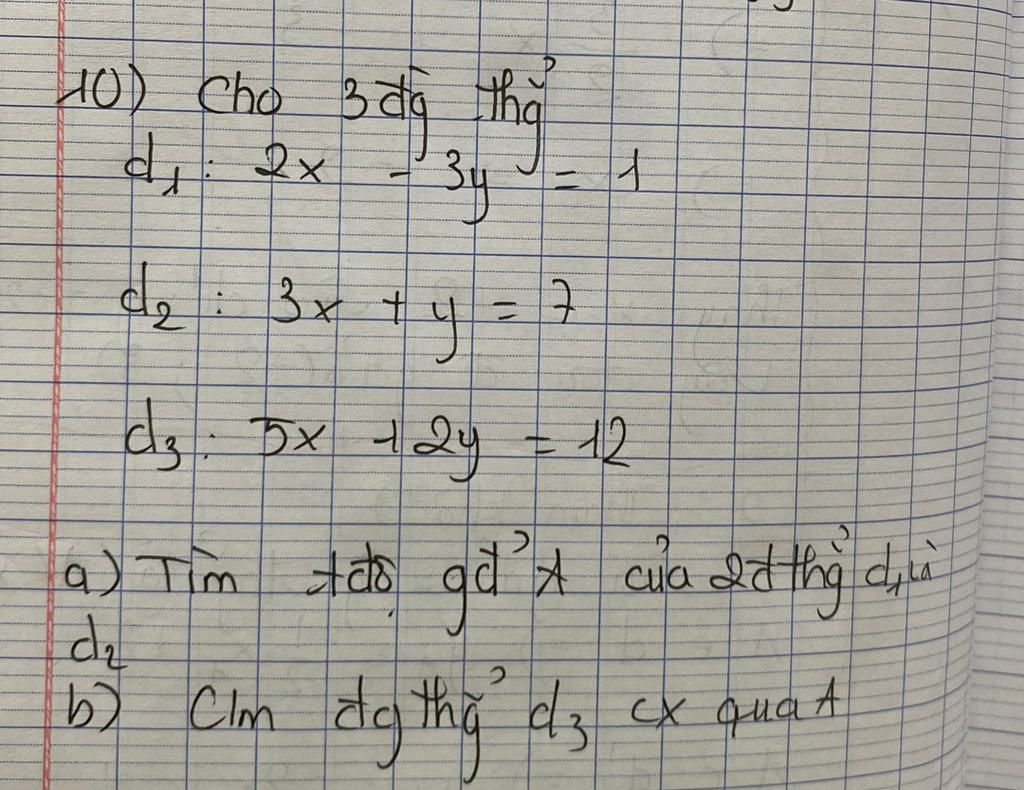 10) Cho 3 đg̀ thg̉
d₁ : 2x - 3y = 1
d₂ : 3x + y = 7
d₃ : 5x + 2y = 12
a) Tìm tđộ gđ' A của 2đ thg̉ d₁ và
d₂
b) C/m đg thg̉ d₃ cx qua A